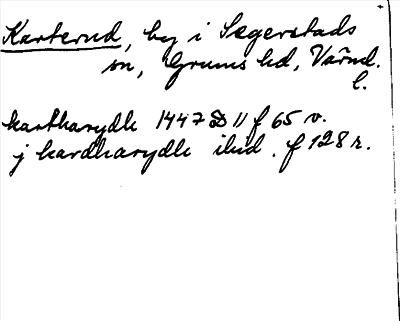 Karterud, by i Segerstads
sn, Grums hd, Värml.
l.
kartharydh 1447 D 11 f 65 v.
j kardharydh ibid. f 128 r.